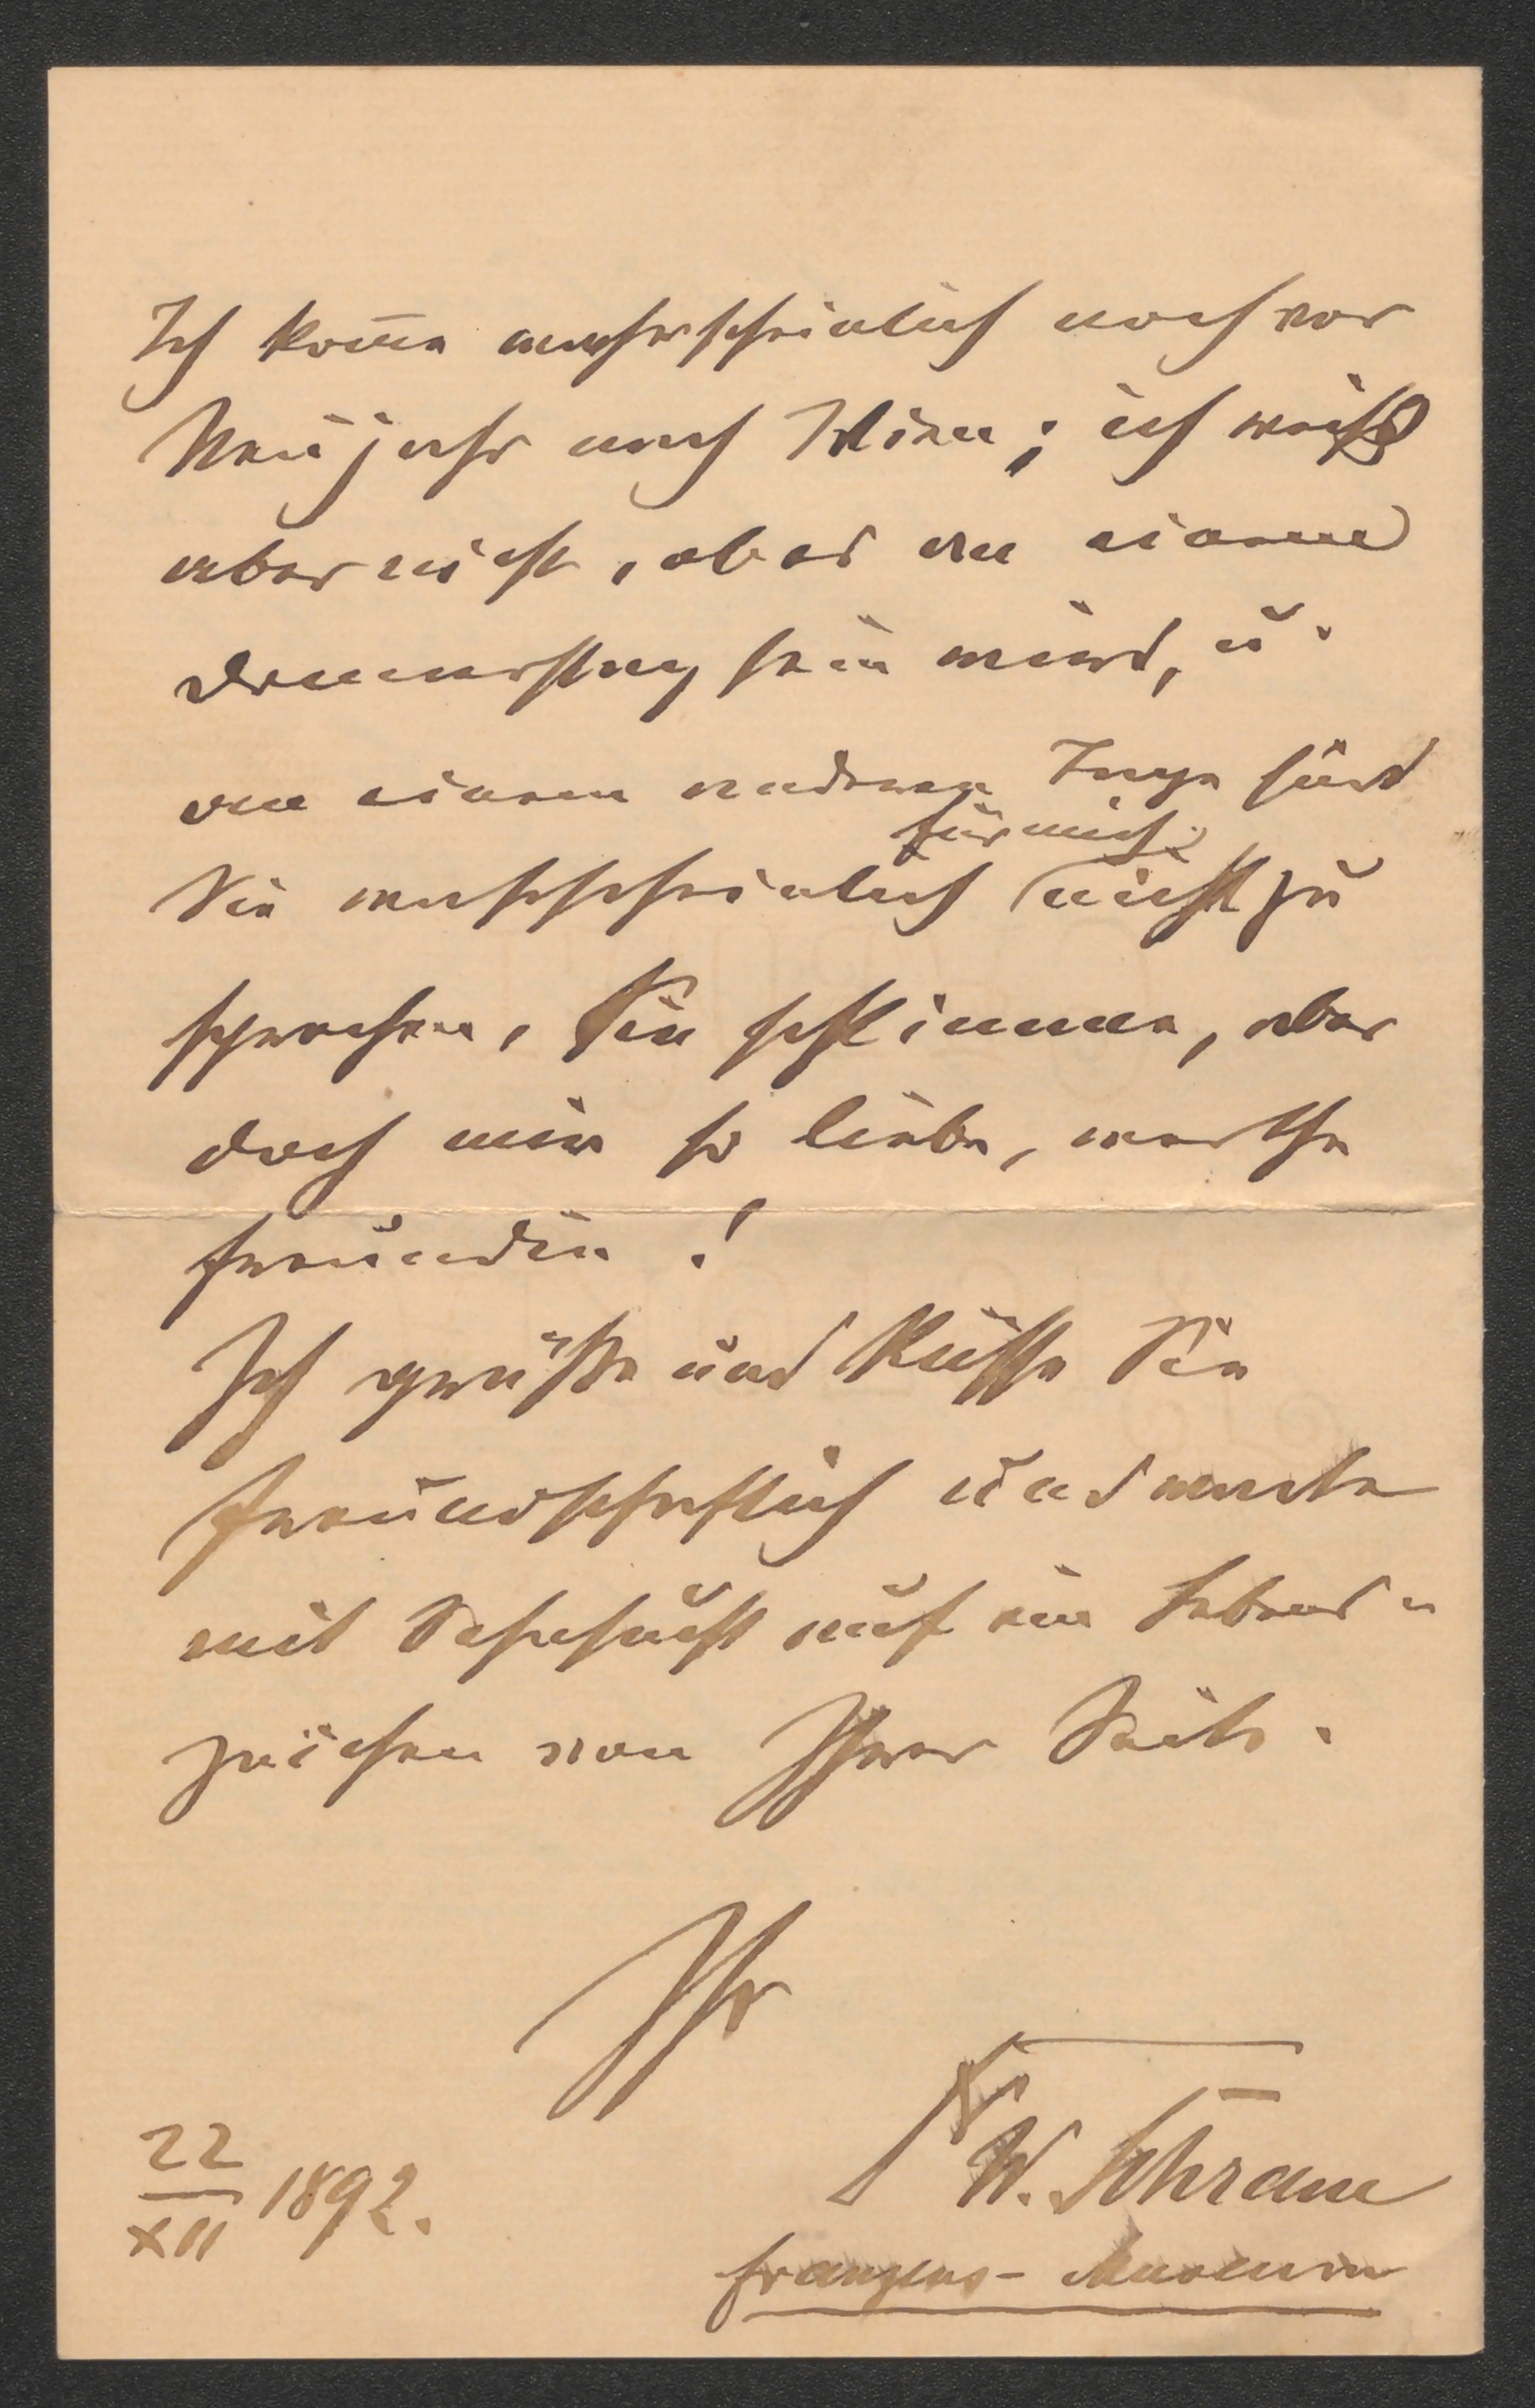 Ich kom̄e wahrscheinlich noch vor
Neujahr nach Wien; ich weiß
aber nicht, ob es an einem
Donnerstag sein wird, u.
an einem anderen Tage sind
für mich
Sie wahrscheinlich nicht zu
sprechen, Sie schlimme, aber
doch mir so liebe, werthe
Freundin!
Ich grüße und küsse Sie
freundschaftlich und warte
mit Sehnsucht auf ein Lebens-
zeichen von Ihrer Seite.
Ihr
W. Schram
Franzens-Museum
22/XII 1892.